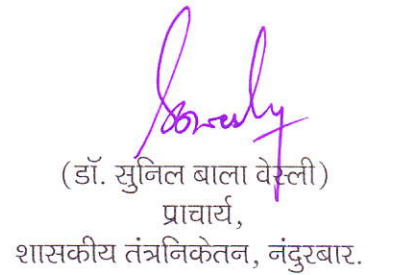 (डॉ. सुनिल बाला वेस्ली)
प्राचार्य,
शासकीय तंत्रनिकेतन, नंदुरबार.